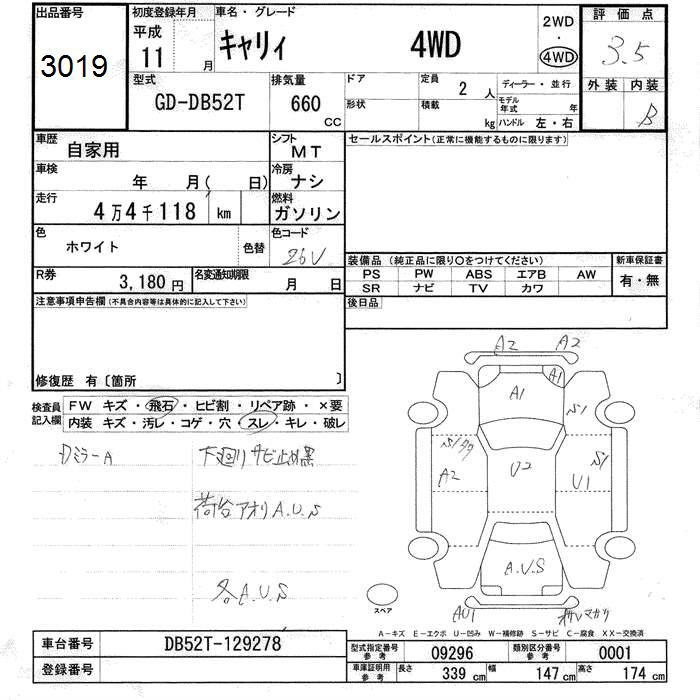 出品番号 初度登録年月 車名・グレード 評価点
3019 平成 11 月 キャリィ 4WD 2WD・4WD 3.5
型式 排気量 ドア 定員 ディーラー・並行 外装 内装
GD-DB52T 660 CC 2人 B
形状 積載 kg モデル年式 年
ハンドル 左・右
車歴 自家用 シフト MT セールスポイント(正常に機能するものに限ります)
車検 年 月( 日) 冷房 ナシ
走行 4万4千118 km 燃料 ガソリン
色 ホワイト 色替 色コード 26V
装備品 (純正品に限り○をつけてください) 新車保証書
R券 3,180円 名変通知期限 月 日
PS PW ABS エアB AW 有・無
SR ナビ TV カワ
注意事項申告欄(不具合内容等は具体的に記入して下さい) 後日品
修復歴 有〔箇所 〕
検査員記入欄 FW キズ・飛石・ヒビ割・リペア跡・×要
内装 キズ・汚レ・コゲ・穴・スレ・キレ・破レ
Dミラー A 下廻りサビ止め黒
荷台アオリA.U.S
各A.U.S
A2 A2
A1 A1
S1
A2 U2 S1
U1
A.U.S
AU1
スペア
A-キズ E-エクボ U-凹み W-補修跡 S-サビ C-腐食 XX-交換済
車台番号 DB52T-129278 型式指定番号 参考 09296 類別区分番号 参考 0001
登録番号 車庫証明用 参考 長さ 339 cm 幅 147 cm 高さ 174 cm